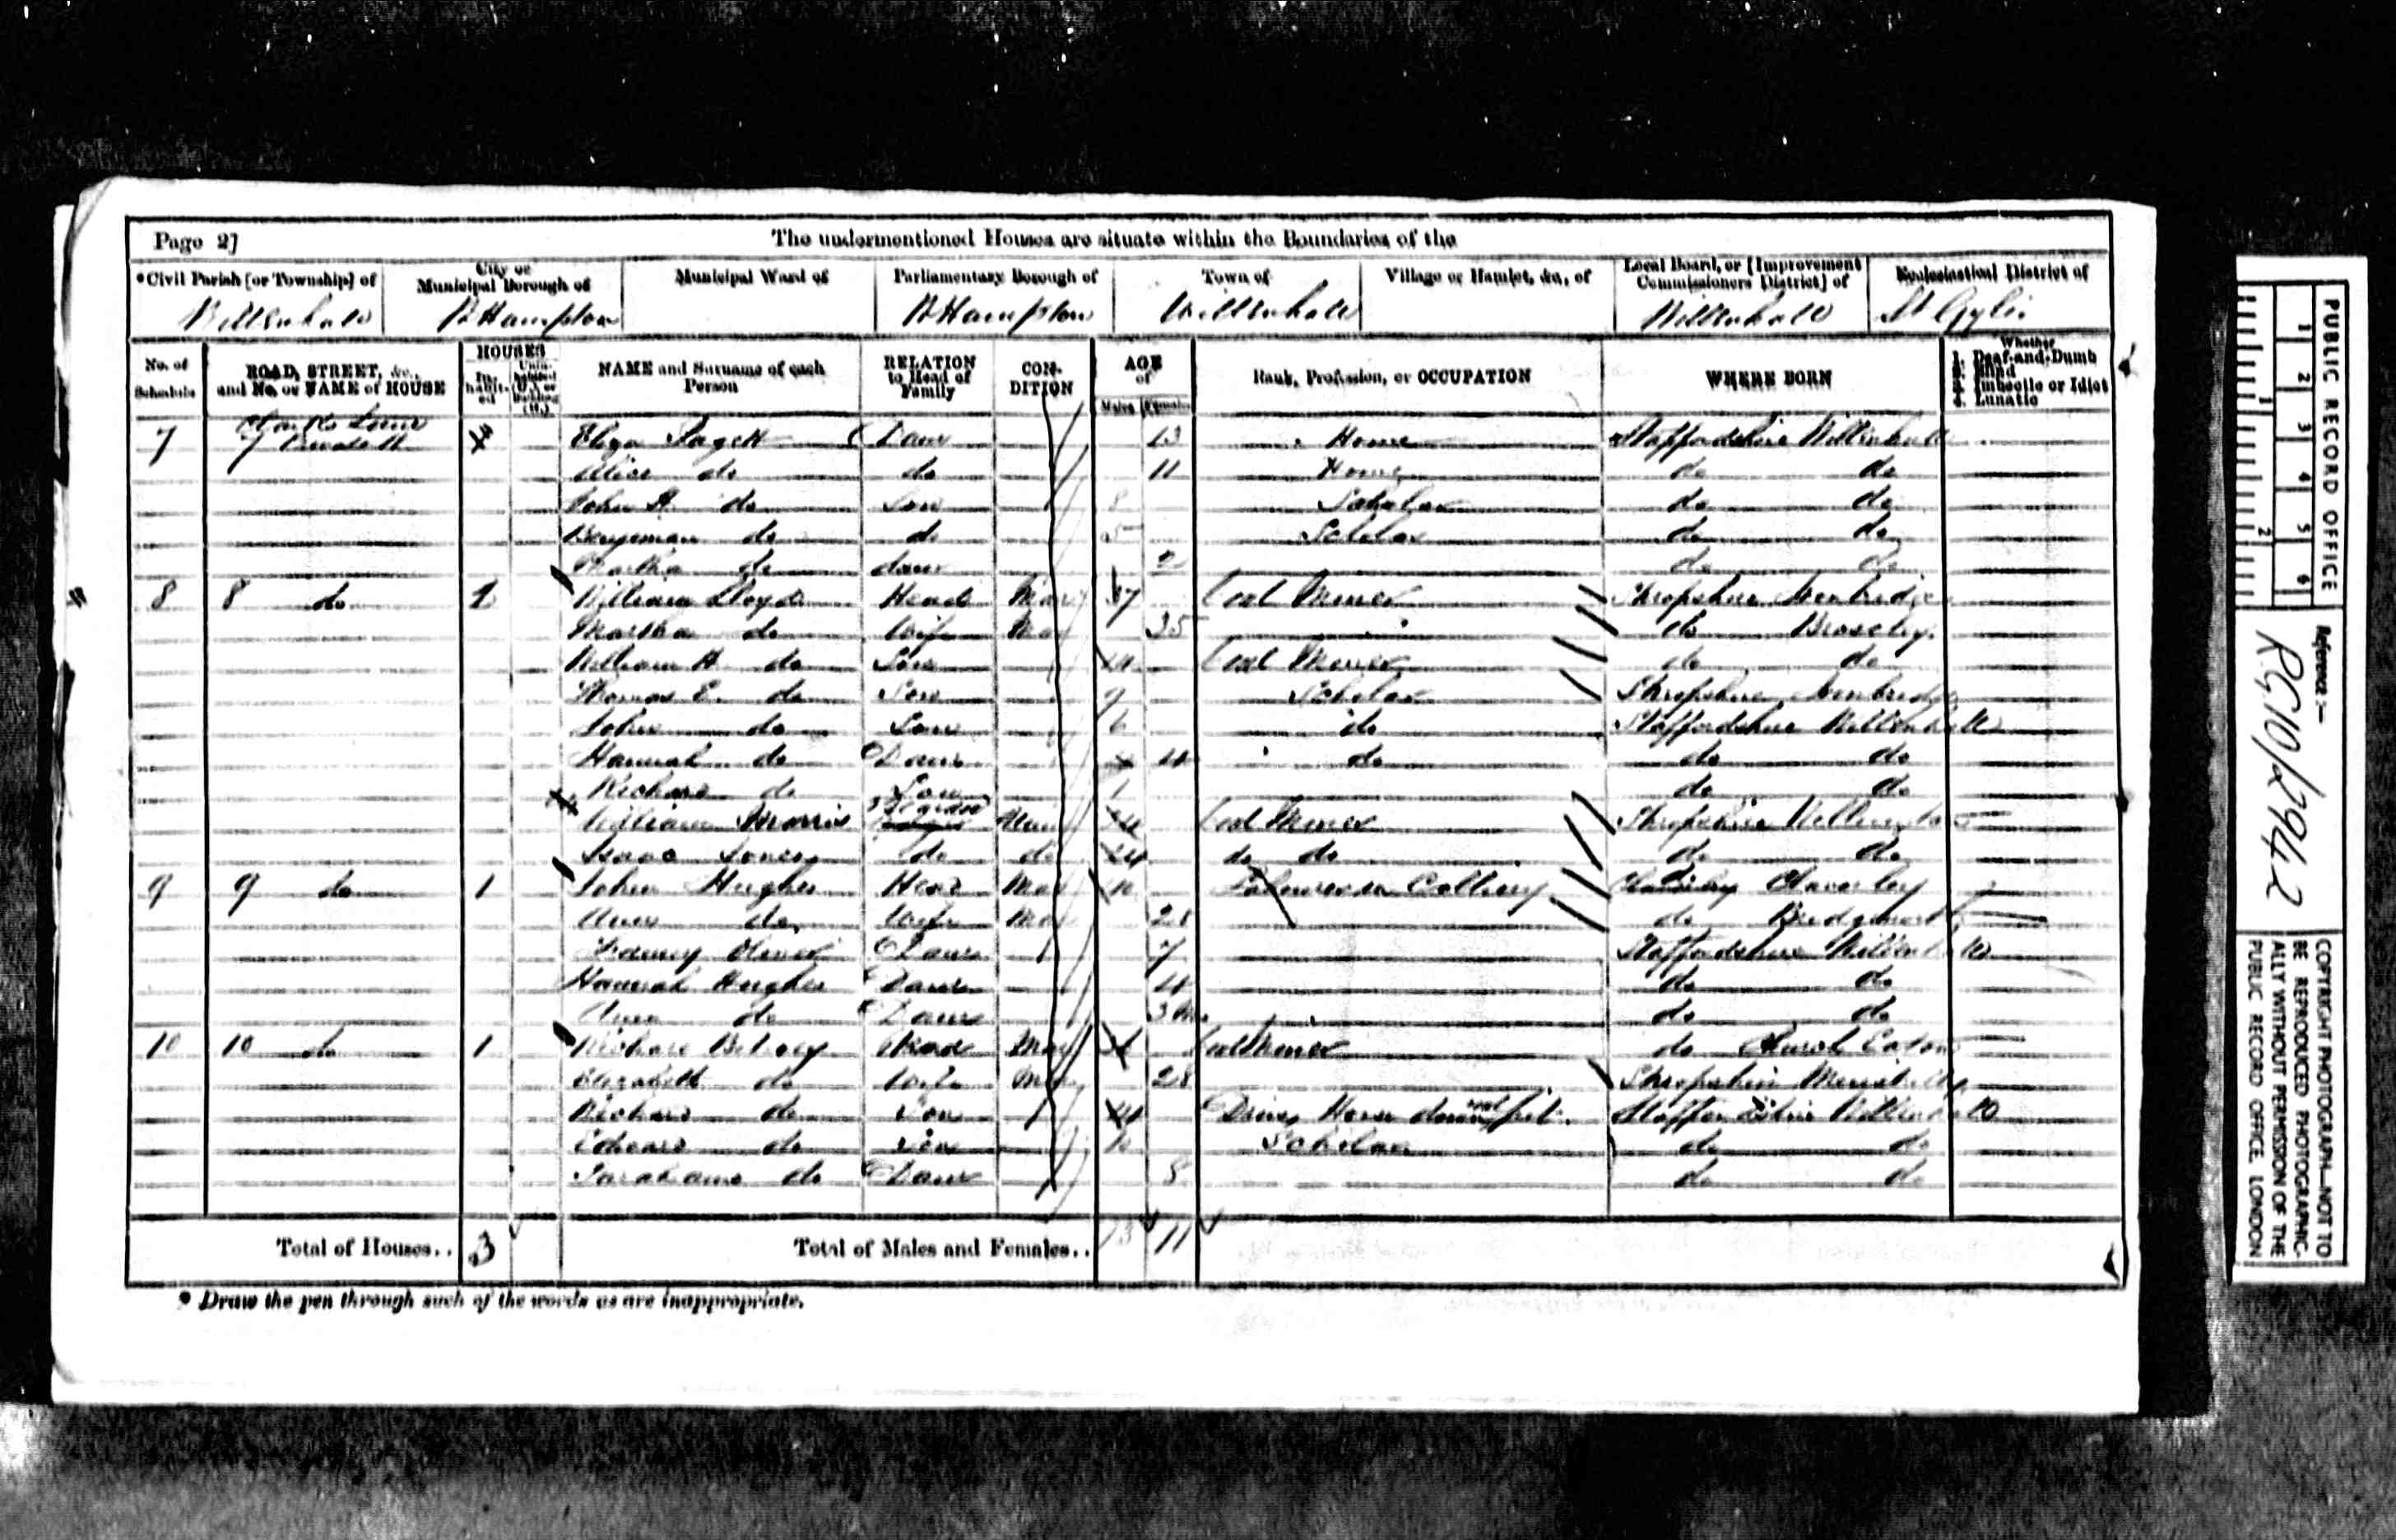 Page 2]
The undermentioned Houses are situate within the Boundaries of the
*Civil Parish [or Township] of
City or Municipal Borough of
Municipal Ward of
Parliamentary Borough of
Town of
Village or Hamlet, &c., of
Local Board, or [Improvement Commissioners District] of
Ecclesiastical District of
Willenhall
W Hampton
W Hampton
Willenhall
Willenhall
St Gyles
No. of Schedule
ROAD, STREET, &c., and No. or NAME of HOUSE
HOUSES
In-habit-ed
Unin-habited (U.) or Building (B.)
NAME and Surname of each Person
RELATION to Head of Family
CON-DITION
AGE of
Males
Females
Rank, Profession, or OCCUPATION
WHERE BORN
Whether
1. Deaf-and-Dumb
2. Blind
3. Imbecile or Idiot
4. Lunatic
7 7 Eliza Daur 13 Home Staffordshire Willenhall
Alice do do 11 Home do do
John H. do Son 8 Scholar do do
Benjeman do do 5 Scholar do do
Martha do daur 2 do do
8 8 do 1 William Lloyd Head Mar 37 Coal Miner Shropshire
Martha do Wife Mar 35 do Broseley
William H. do Son Coal Miner do do
Thomas E. do Son 9 Scholar Shropshire
John do Son 6 do Staffordshire Willenhall
Hannah do Daur 4 do do do
Richard do Son 1 do do
William Morris Coal Miner Shropshire Wellington
Isaac Jones do do 24 do do do do
9 9 do 1 John Hughes Head Mar Colliery Claverley
Ann do Wife Mar 28 do Bridgnorth
Fanny Daur 7 Staffordshire Willenhall
Hannah Hughes Daur 4 do do
Ann do Daur 3 M. do do
10 10 do 1 Richard Head Mar Coal Miner do Church Eaton
Elizabeth do Wife Mar 28 Shropshire
Richard do Son Horse down pit. Staffordshire Willenhall
Edward do Son 10 Scholar do do
Sarah ann do Daur 8 do do
Total of Houses.. 3
Total of Males and Females.. 13 11
* Draw the pen through such of the words as are inappropriate.
PUBLIC RECORD OFFICE
1 2 3 4 5 6
1 2
Reference :—
RG10/2942
COPYRIGHT PHOTOGRAPH—NOT TO
BE REPRODUCED PHOTOGRAPHIC-
ALLY WITHOUT PERMISSION OF THE
PUBLIC RECORD OFFICE, LONDON